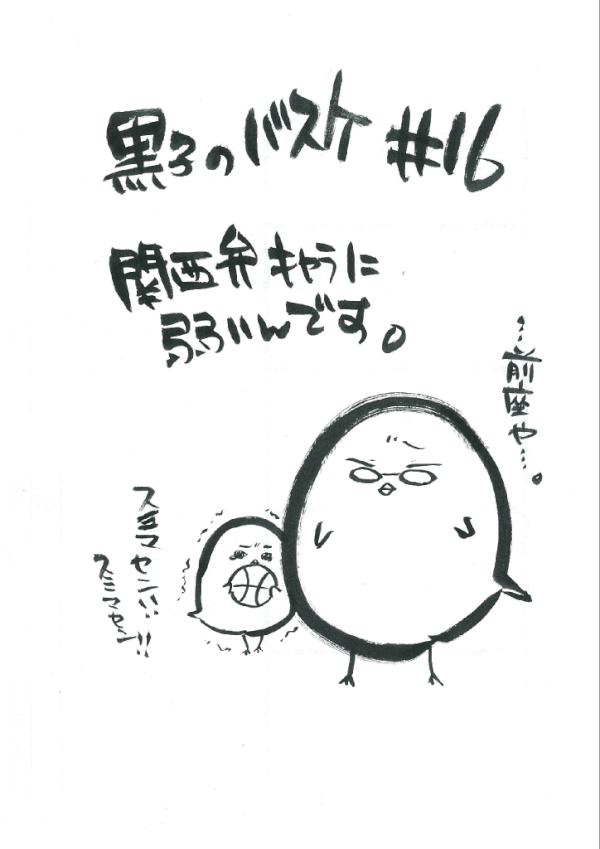 黒子のバスケ #16
関西弁キャラに
弱いんです。
…前座や…。
スミマセン!!
スミマセン!!